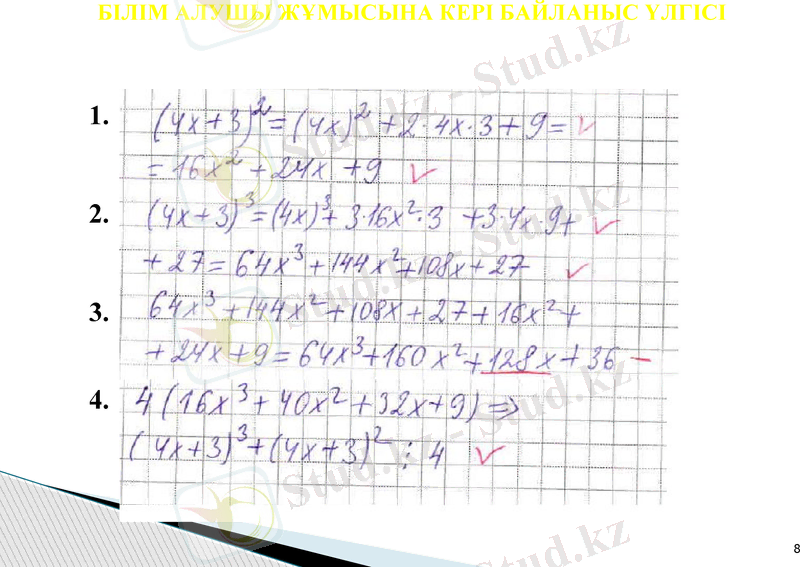 БІЛІМ АЛУШЫ ЖҰМЫСЫНА КЕРІ БАЙЛАНЫС ҮЛГІСІ
1. (4x+3)²=(4x)²+2·4x·3+9=
=16x²+24x+9
2. (4x+3)³=(4x)³+3·16x²·3+3·4x·9+
+27=64x³+144x²+108x+27
3. 64x³+144x²+108x+27+16x²+
+24x+9=64x³+160x²+128x+36 −
4. 4(16x³+40x²+32x+9)⇒
(4x+3)³+(4x+3)²⋮4
8
Stud.kz - Stud.kz